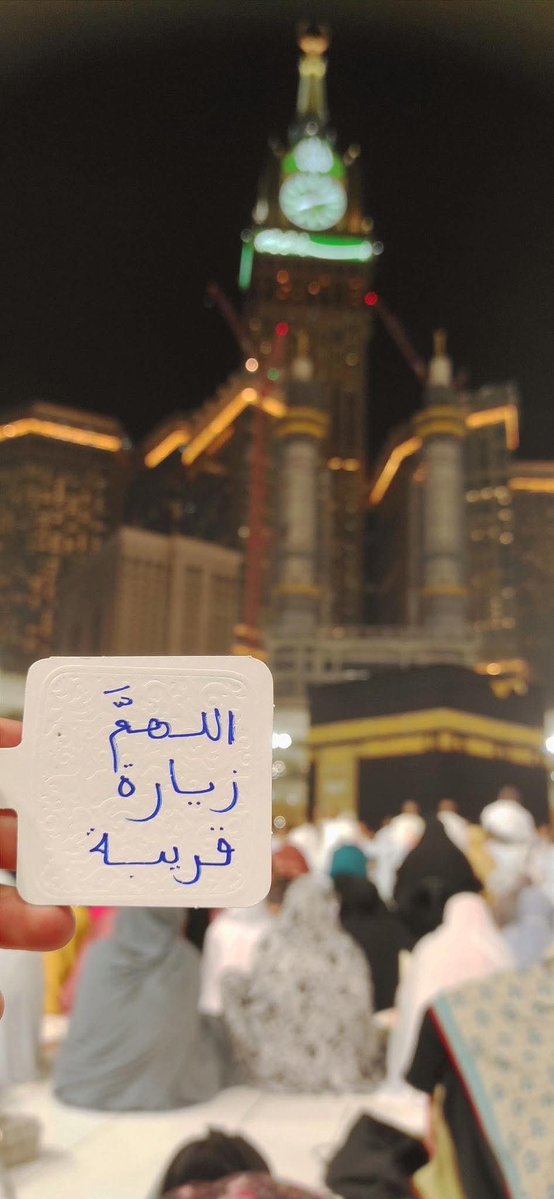 اللهمَّ
زيارة
قريبة